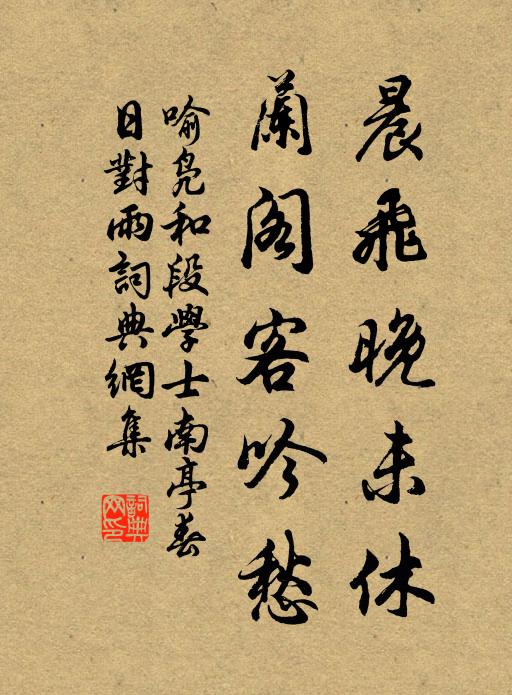 晨飛晚未休
蘭閣客吟愁
喻鳧和段學士南亭春
日對雨詞典網集
詞典
網印